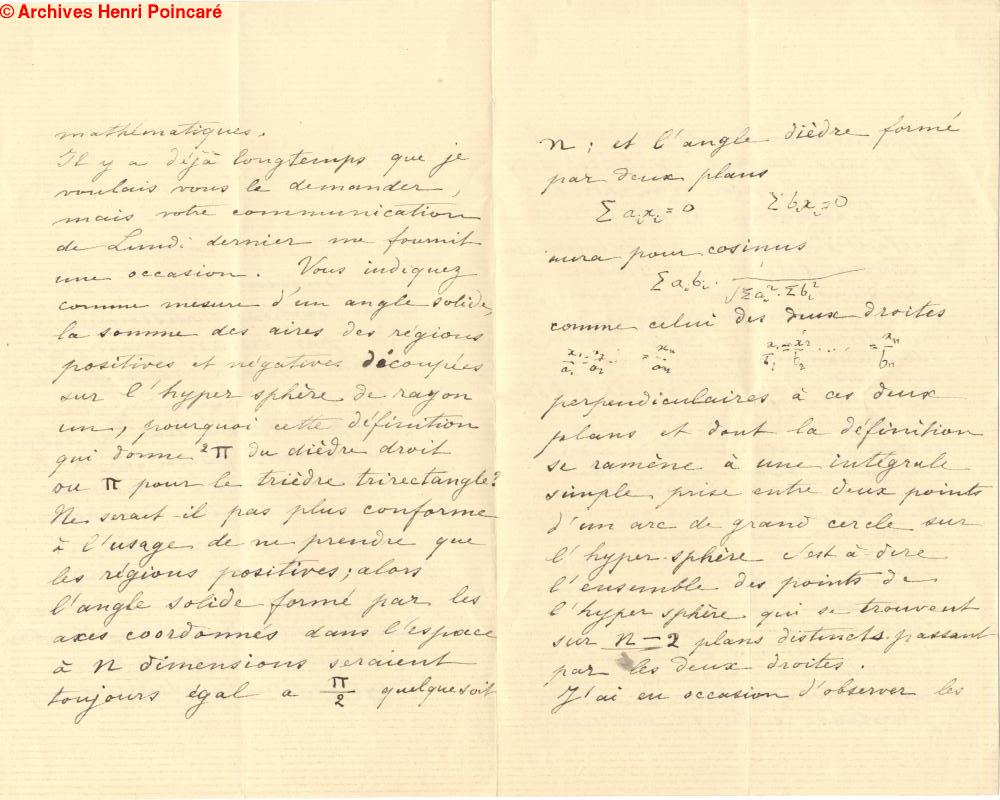 © Archives Henri Poincaré
mathématiques.
Il y a déjà longtemps que je
voulais vous le demander,
mais votre communication
de Lundi dernier me fournit
une occasion. Vous indiquez
comme mesure d'un angle solide,
la somme des aires des régions
positives et négatives découpées
sur l'hyper sphère de rayon
un, pourquoi cette définition
qui donne 2π du dièdre droit
ou π pour le trièdre trirectangle?
Ne serait-il pas plus conforme
à l'usage de ne prendre que
les régions positives; alors
l'angle solide formé par les
axes coordonnés dans l'espace
à n dimensions seraient
toujours égal a π/2 quelquesoit
n; et l'angle dièdre formé
par deux plans
Σ aᵢxᵢ = 0 Σ bᵢxᵢ = 0
aura pour cosinus
Σ aᵢbᵢ · 1/√(Σaᵢ² · Σbᵢ²)
comme celui des deux droites
x₁/a₁ = x₂/a₂ ... = xₙ/aₙ x₁/b₁ = x₂/b₂ .... = xₙ/bₙ
perpendiculaires à ces deux
plans et dont la définition
se ramène à une intégrale
simple prise entre deux points
d'un arc de grand cercle sur
l'hyper-sphère c'est à-dire
l'ensemble des points de
l'hyper sphère qui se trouvent
sur n-2 plans distincts passant
par les deux droites.
J'ai eu occasion d'observer les